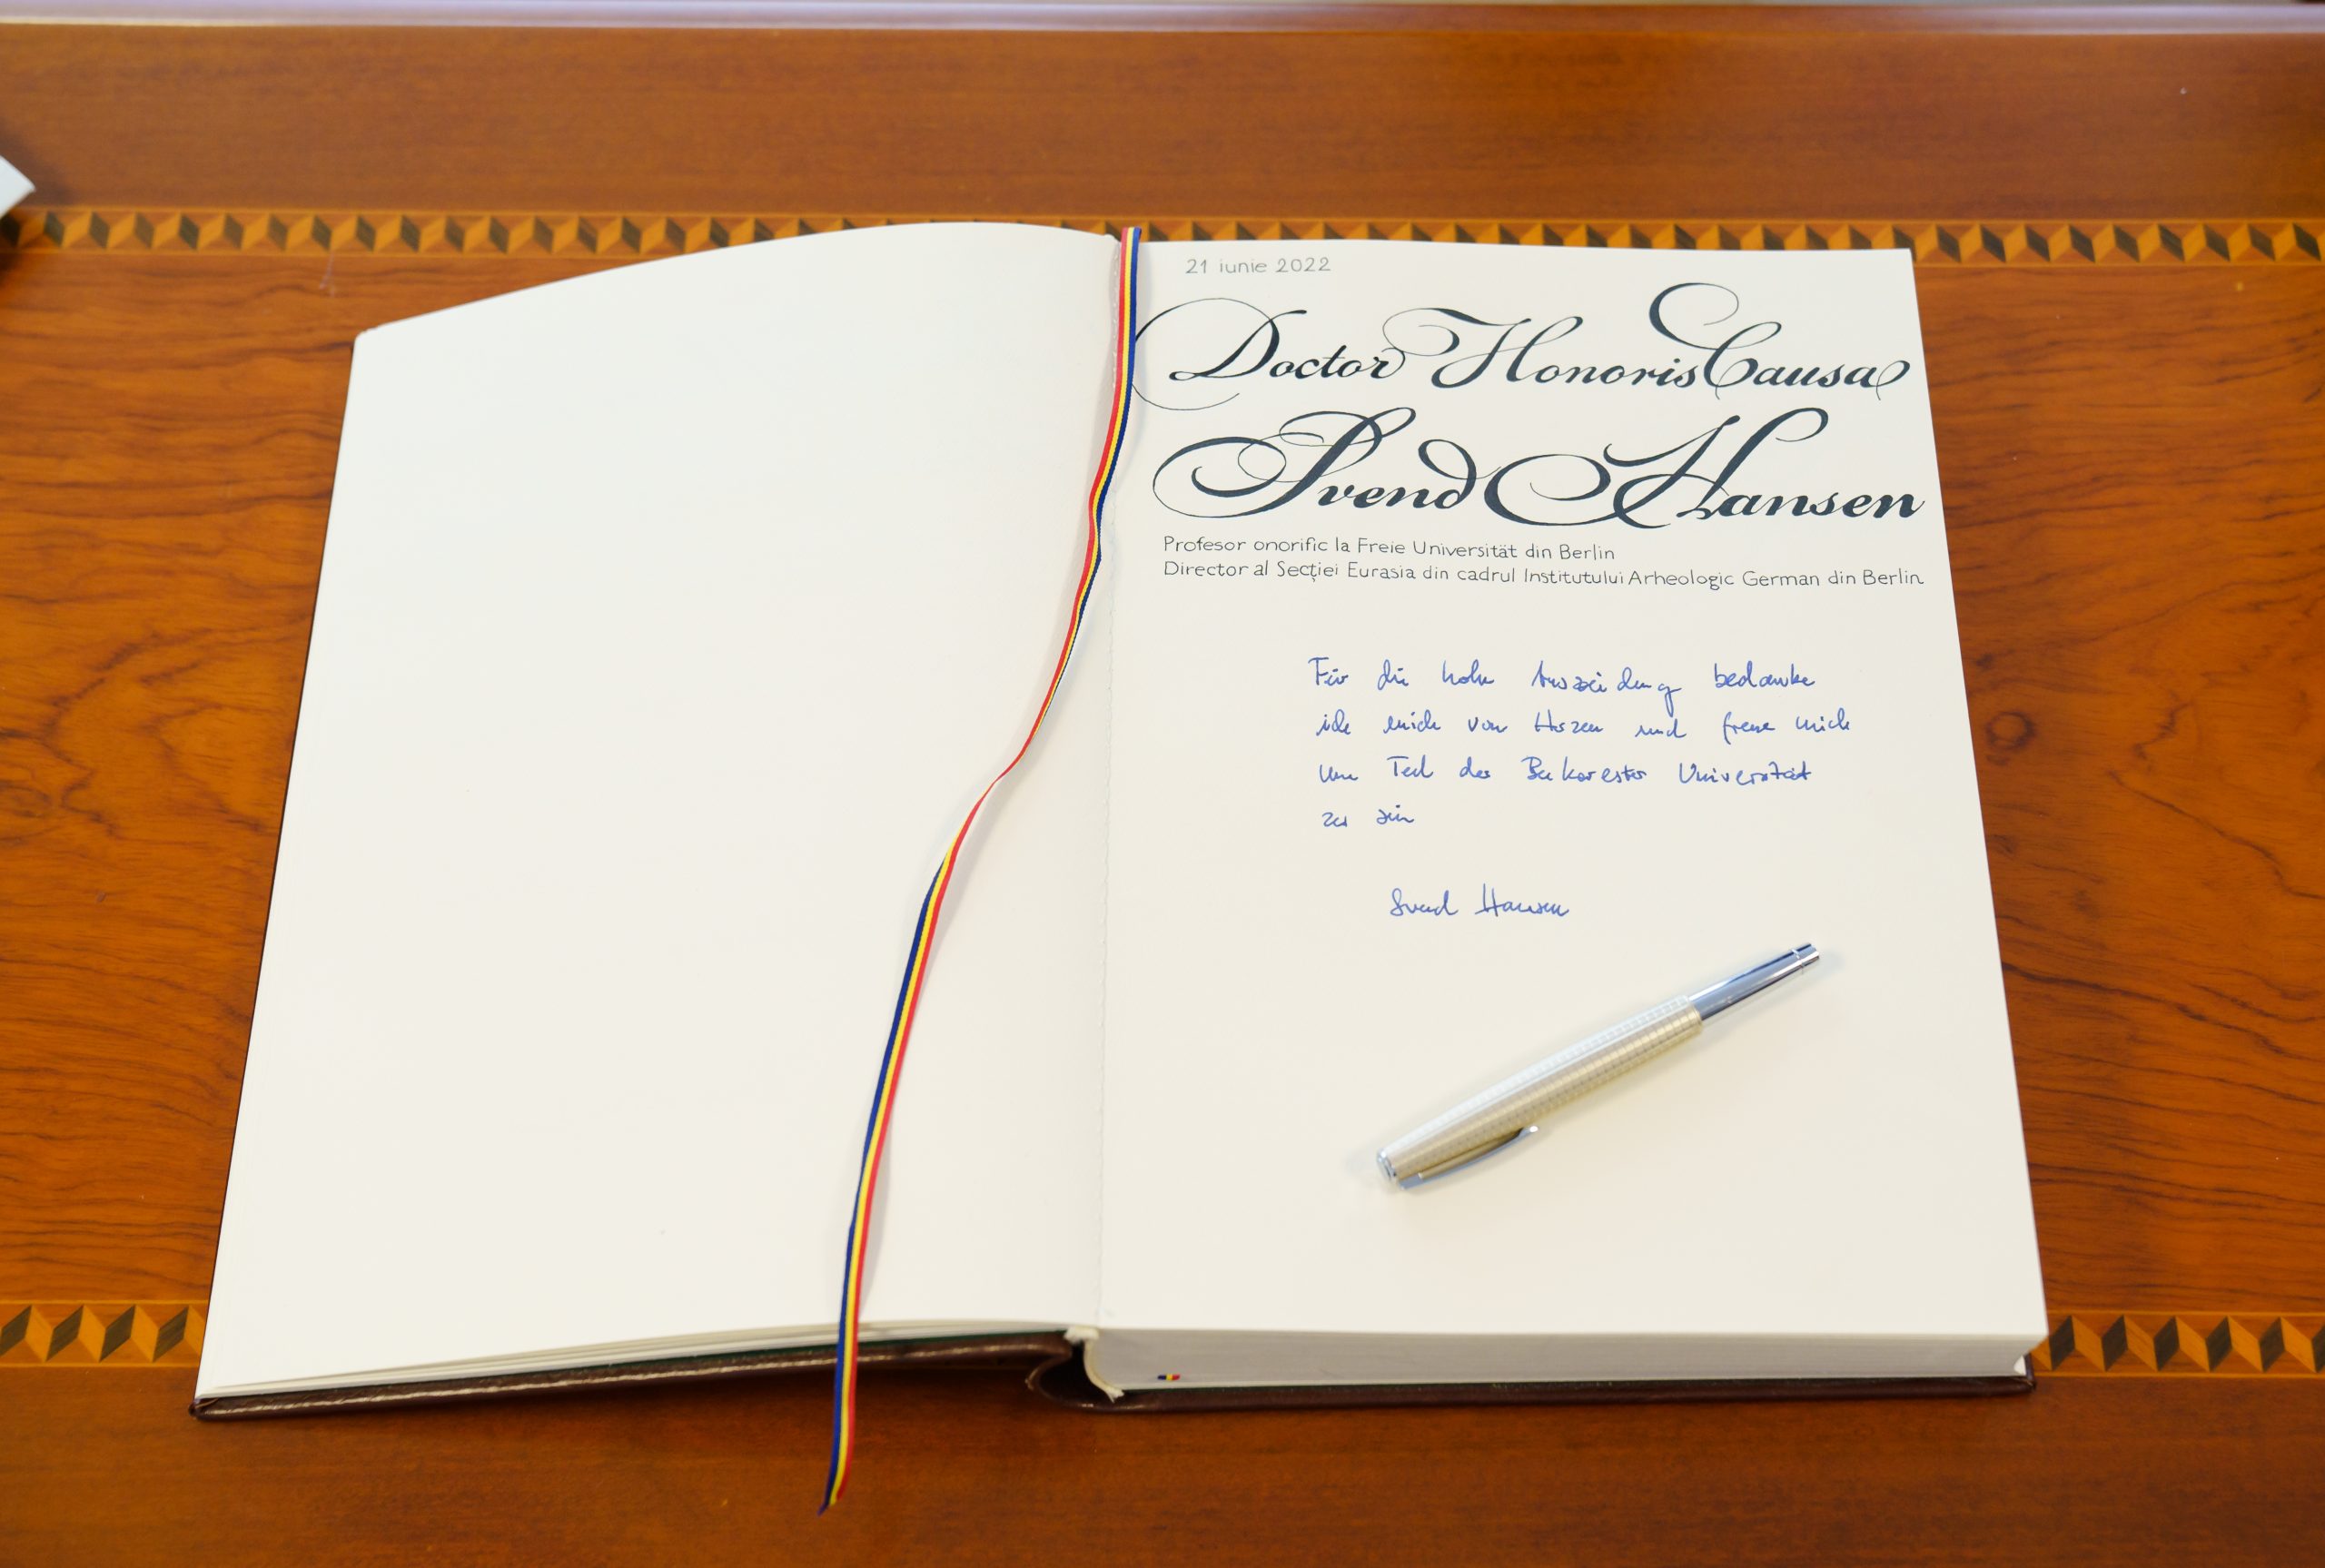 21 iunie 2022
Doctor Honoris Causa
Svend Hansen
Profesor onorific la Freie Universität din Berlin
Director al Secției Eurasia din cadrul Institutului Arheologic German din Berlin
Für die hohe bedanke
ich mich von Herzen und freue mich
Teil der Bukarester Universität
zu sein
Svend Hansen